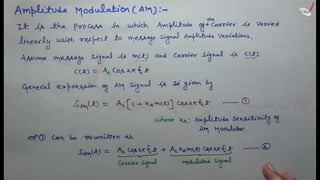 Amplitude Modulation (AM):-
It is the Process in which Amplitude of the Carrier is Varied
linearly with respect to message signal Amplitude Variations.
Assume message signal is m(t) and Carrier signal is c(t).
c(t) = Ac Cos 2π fc t
General expression of AM signal is as given by
SAM(t) = Ac [1 + ka m(t)] cos 2π fc t — ①
Where ka: Amplitude Sensitivity of
AM Modulator
① Can be rewritten as
SAM(t) = Ac Cos 2π fc t + Ac ka m(t) cos 2π fc t — ②
Carrier Signal Modulated Signal